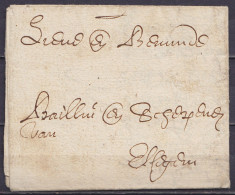 Lieve en Beminde
Bailliu en Schepenen
van
Elsegem